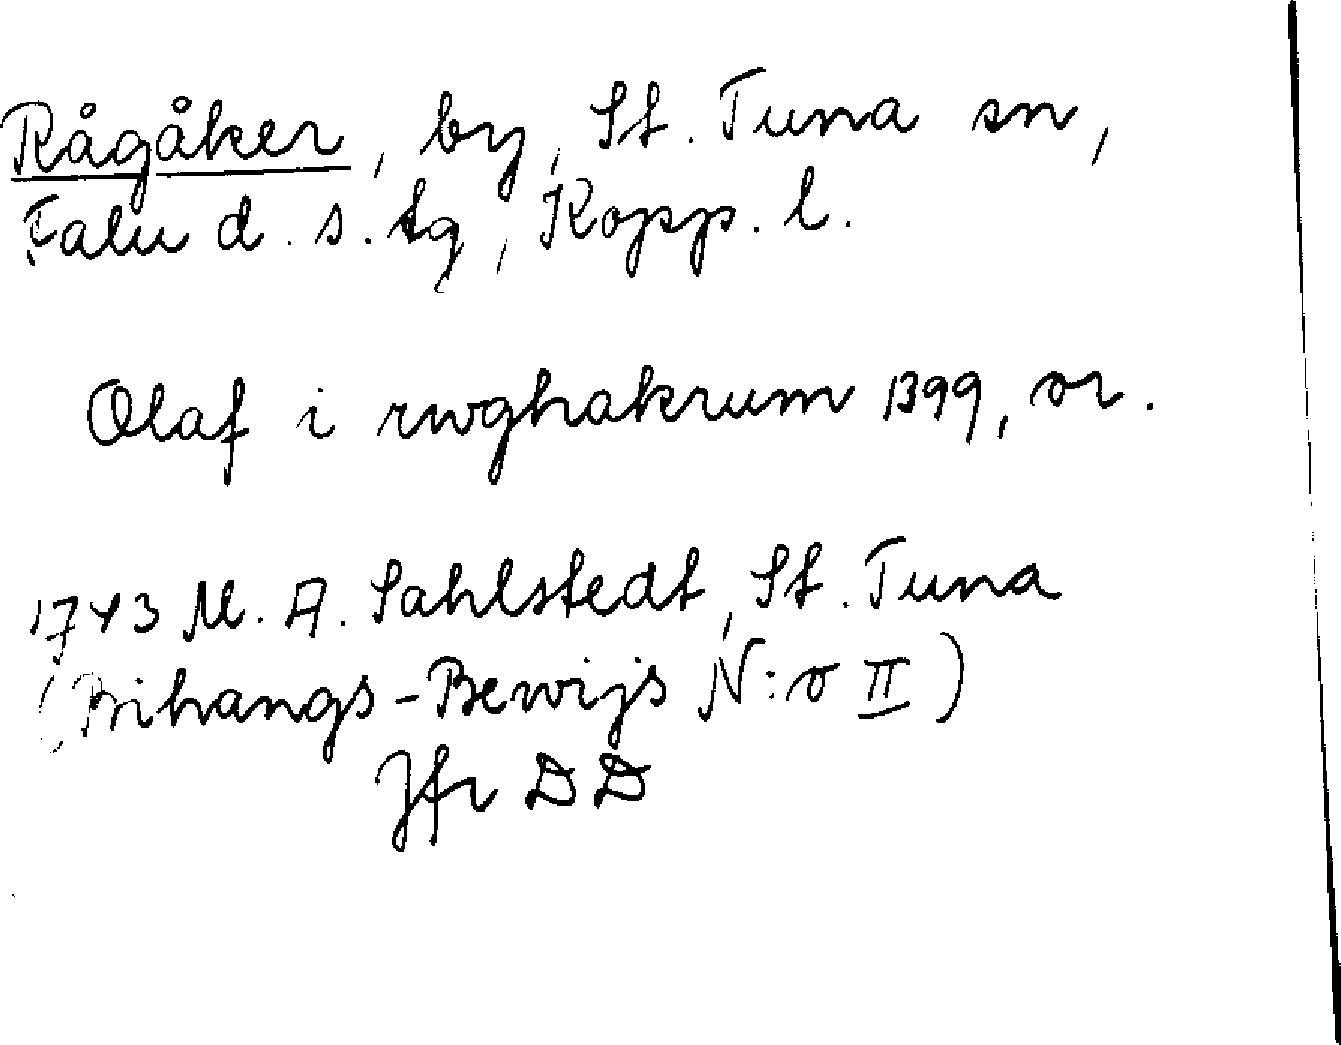 Rågåker, by, St. Tuna sn,
Falu d. s. tg, Kopp. l.
Olaf i rwghakrum 1399, or.
1743 M. A. Sahlstedt, St. Tuna
(Bihangs-Bewijs N:o II)
Jfr DD